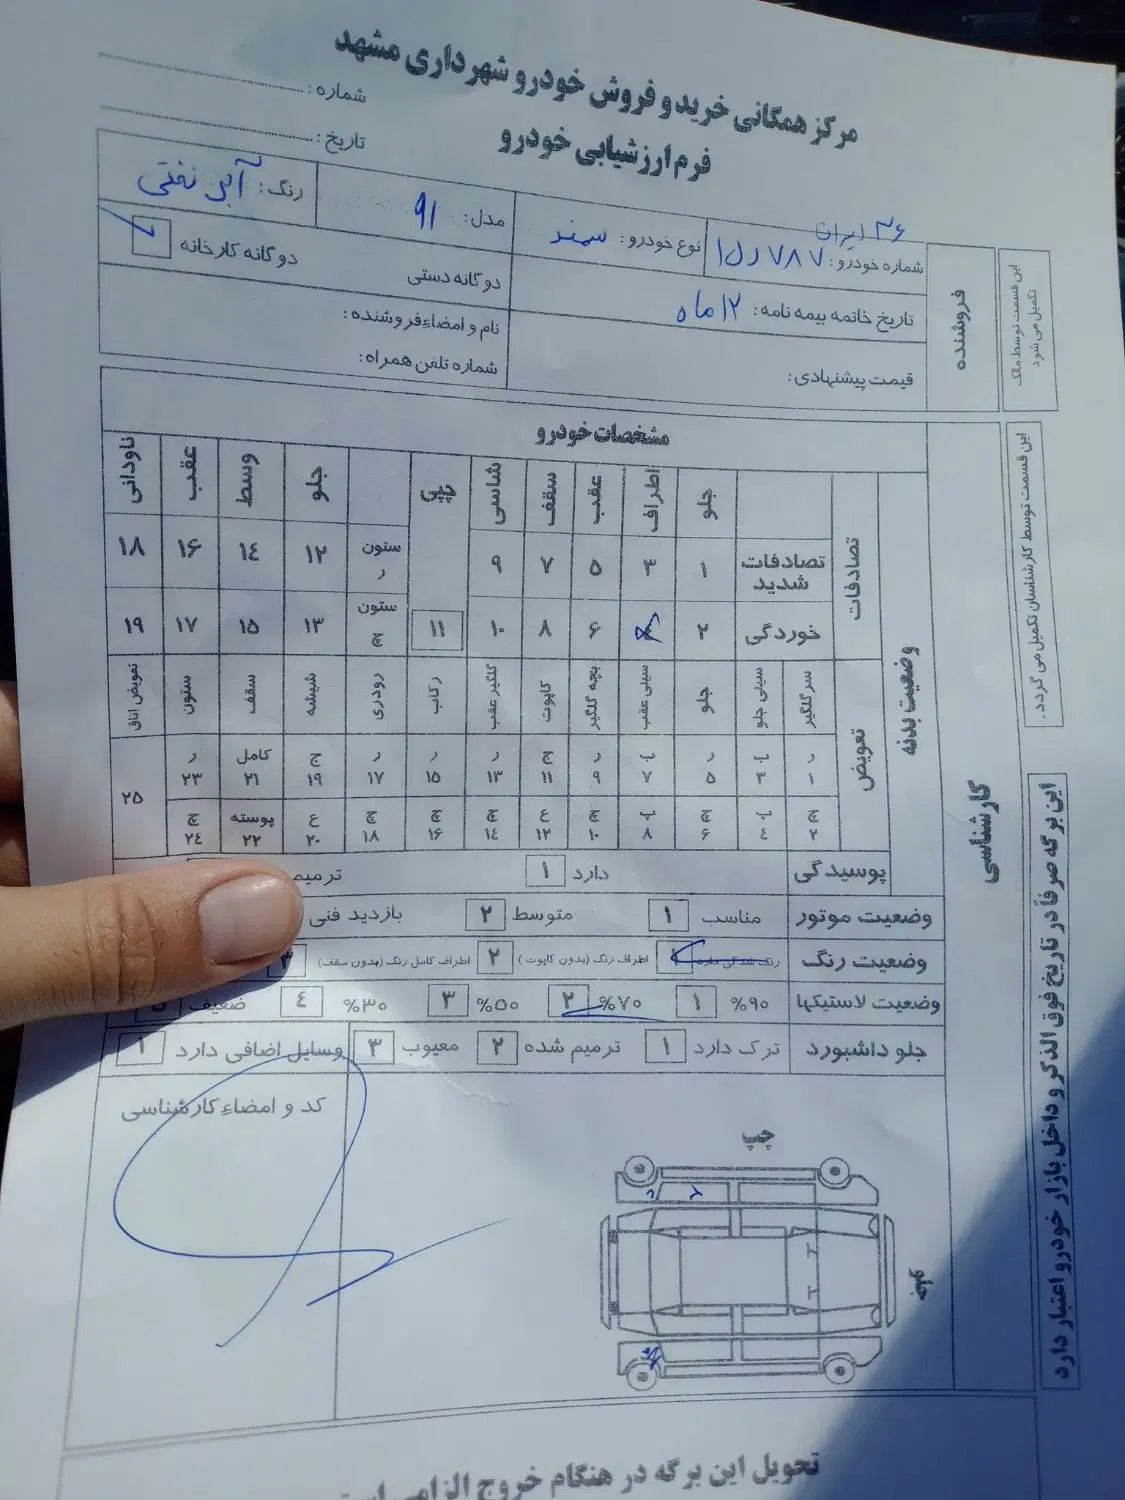 مرکز همگانی خرید و فروش خودرو شهرداری مشهد
فرم ارزشیابی خودرو
شماره :
تاریخ :
این قسمت توسط مالک تکمیل می شود
فروشنده
ایران ۳۶
شماره خودرو : ۷۸۷
نوع خودرو : سمند
مدل : ۹۱
رنگ : آبی نفتی
تاریخ خاتمه بیمه نامه : ۱۲ ماه
دوگانه دستی
دوگانه کارخانه
قیمت پیشنهادی :
نام و امضاء فروشنده :
شماره تلفن همراه :
این قسمت توسط کارشناسان تکمیل می گردد .
کارشناسی
مشخصات خودرو
وضعیت بدنه
تصادفات
جلو اطراف عقب سقف شاسی چپی جلو وسط عقب ناودانی
تصادفات شدید ۱ ۳ ۵ ۷ ۹ ستون ر ۱۲ ۱۴ ۱۶ ۱۸
خوردگی ۲ ۶ ۸ ۱۰ ۱۱ ستون چ ۱۳ ۱۵ ۱۷ ۱۹
تعویض
سرگلگیر سینی جلو جلو سینی عقب بچه گلگیر کاپوت گلگیر عقب رکاب رودری شیشه سقف ستون تعویض اتاق
ر ۱ ب ۳ ر ۵ ب ۷ ر ۹ ج ۱۱ ر ۱۳ ر ۱۵ ر ۱۷ ج ۱۹ کامل ۲۱ ر ۲۳ ۲۵
چ ۲ ب ۴ چ ۶ ب ۸ چ ۱۰ ع ۱۲ چ ۱۴ چ ۱۶ چ ۱۸ ع ۲۰ پوسته ۲۲ چ ۲۴
پوسیدگی دارد ۱ ترمیم
وضعیت موتور مناسب ۱ متوسط ۲ بازدید فنی
وضعیت رنگ رنگ شدگی دارد ۱ اطراف رنگ (بدون کاپوت) ۲ اطراف کامل رنگ (بدون سقف) ۳
وضعیت لاستیکها ۹۰% ۱ ۷۰% ۲ ۵۰% ۳ ۳۰% ۴ ضعیف ۵
جلو داشبورد ترک دارد ۱ ترمیم شده ۲ معیوب ۳ وسایل اضافی دارد ۱
کد و امضاء کارشناسی
چپ
این برگه صرفاً در تاریخ فوق الذکر و داخل بازار خودرو اعتبار دارد
تحویل این برگه در هنگام خروج الزامی است